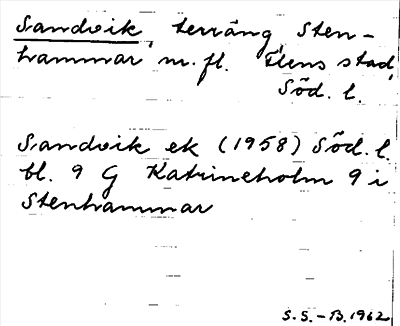 Sandvik, terräng, Sten-
hammar m.fl. Flens stad,
Söd. l.
Sandvik ek (1958) Söd. l.
bl. 9 G Katrineholm 9 i
Stenhammar
S.S.-B. 1962